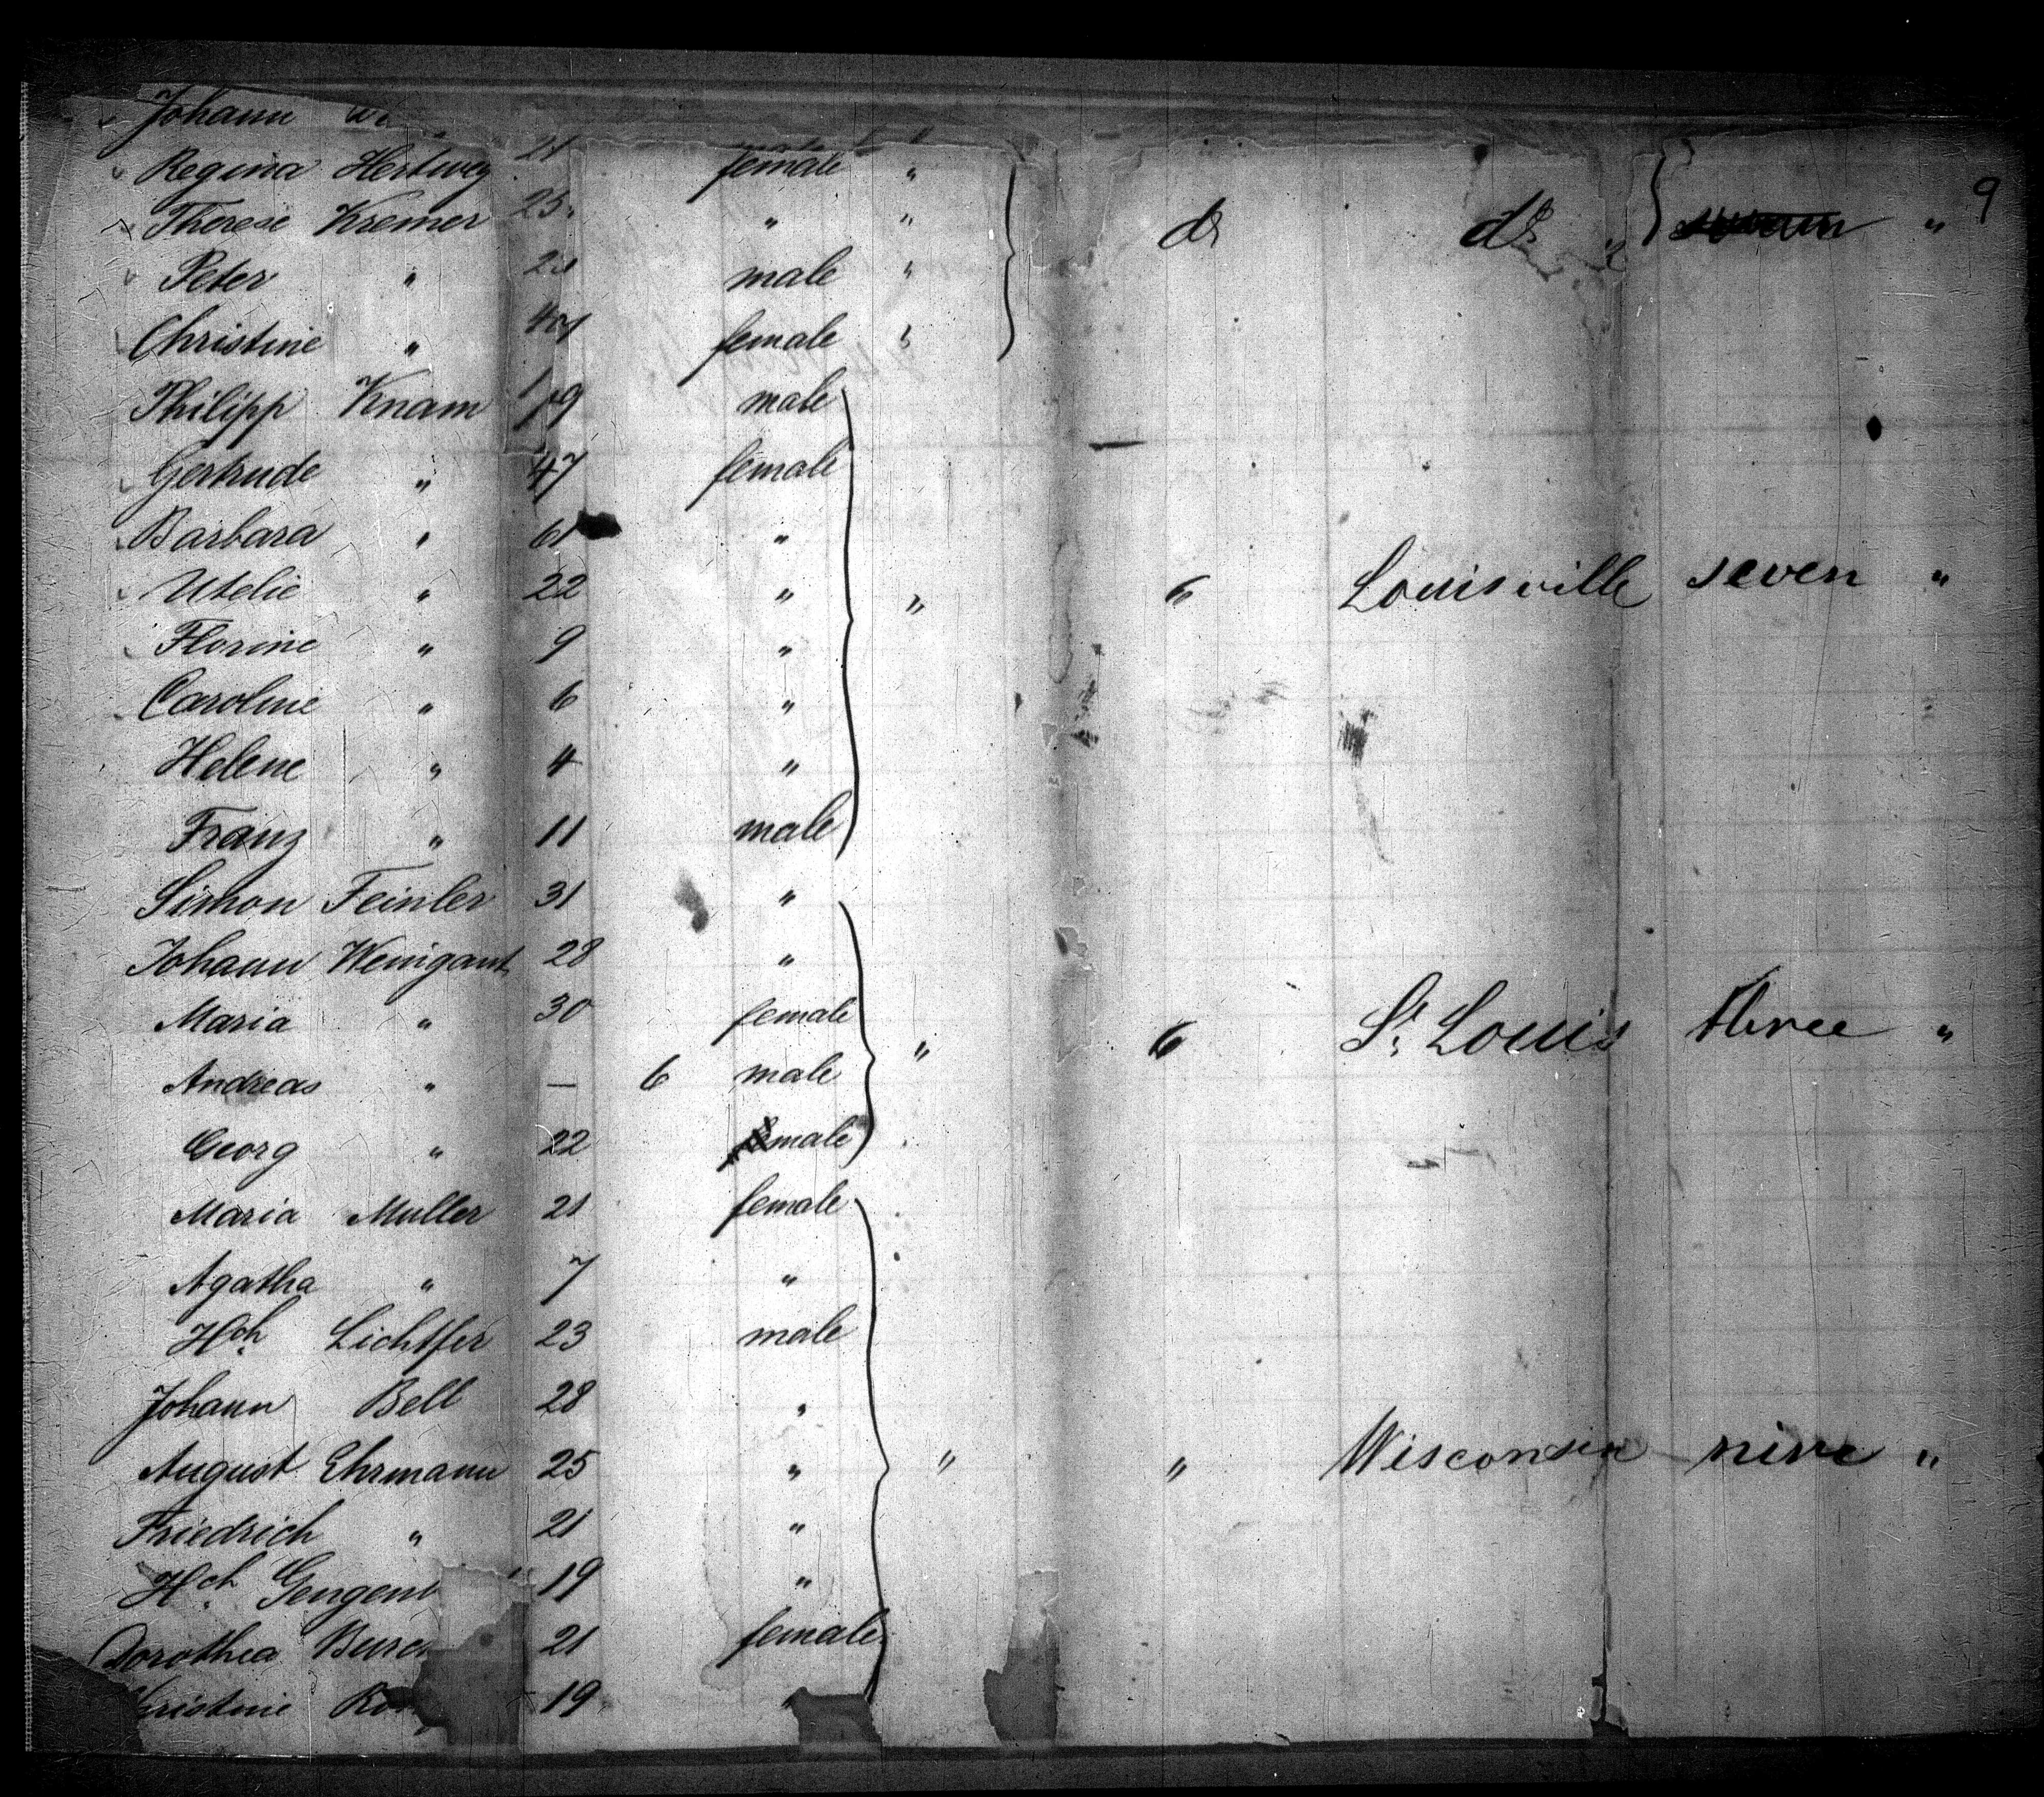 Johann
Regina Hertweg 21 female "
Therese Kremer 25 " " do do " 9
Peter " 21 male "
Christine " 47 female "
Philipp Knam 19 male
Gertrude " 47 female
Barbara " 61 "
Utelie " 22 " " " Louisville seven "
Florine " 9 "
Caroline " 6 "
Helene " 4 "
Franz " 11 male
Simon Feinler 31 "
Johann Weingant 28 "
Maria " 30 female " " St. Louis three "
Andreas " — 6 male
Georg " 22 male
Maria Muller 21 female
Agatha " 7 "
Hch. Lichtfer 23 male
Johann Bell 28 "
August Ehrmann 25 " " " Wisconsin nine "
Friedrich " 21 "
Hch. 19 "
Dorothea 21 female
19